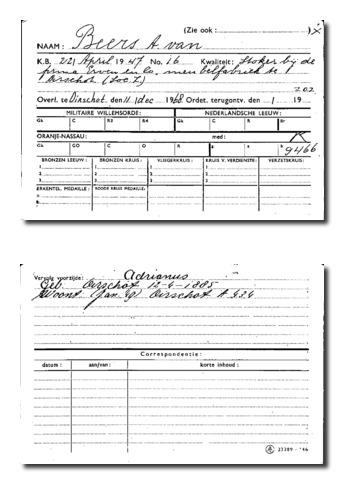 (Zie ook : )
NAAM : Beers A. van
K.B. 22 April 1947 No. 16 Kwaliteit: Stoker bij de
firma en Co, meubelfabriek te
Oirschot
202
Overl. te Oirschot, den 11 dec 1968 Ordet. terugontv. den 19
MILITAIRE WILLEMSORDE: NEDERLANDSCHE LEEUW:
Gk C R3 R4 Gk C R Br
ORANJE-NASSAU: med:
Gk GO C O R g z b
9466
BRONZEN LEEUW: BRONZEN KRUIS: VLIEGERKRUIS: KRUIS V. VERDIENSTE: VERZETSKRUIS:
1. 1. 1. 1.
2. 2. 2. 2.
3. 3. 3. 3.
ERKENTEL. MEDAILLE: ROODE KRUIS MEDAILLE:
Vervolg voorzijde: Adrianus
Geb. Oirschot 12-4-1885
Woont Oirschot A 536
Correspondentie:
datum: aan/van: korte inhoud:
23389 - '46